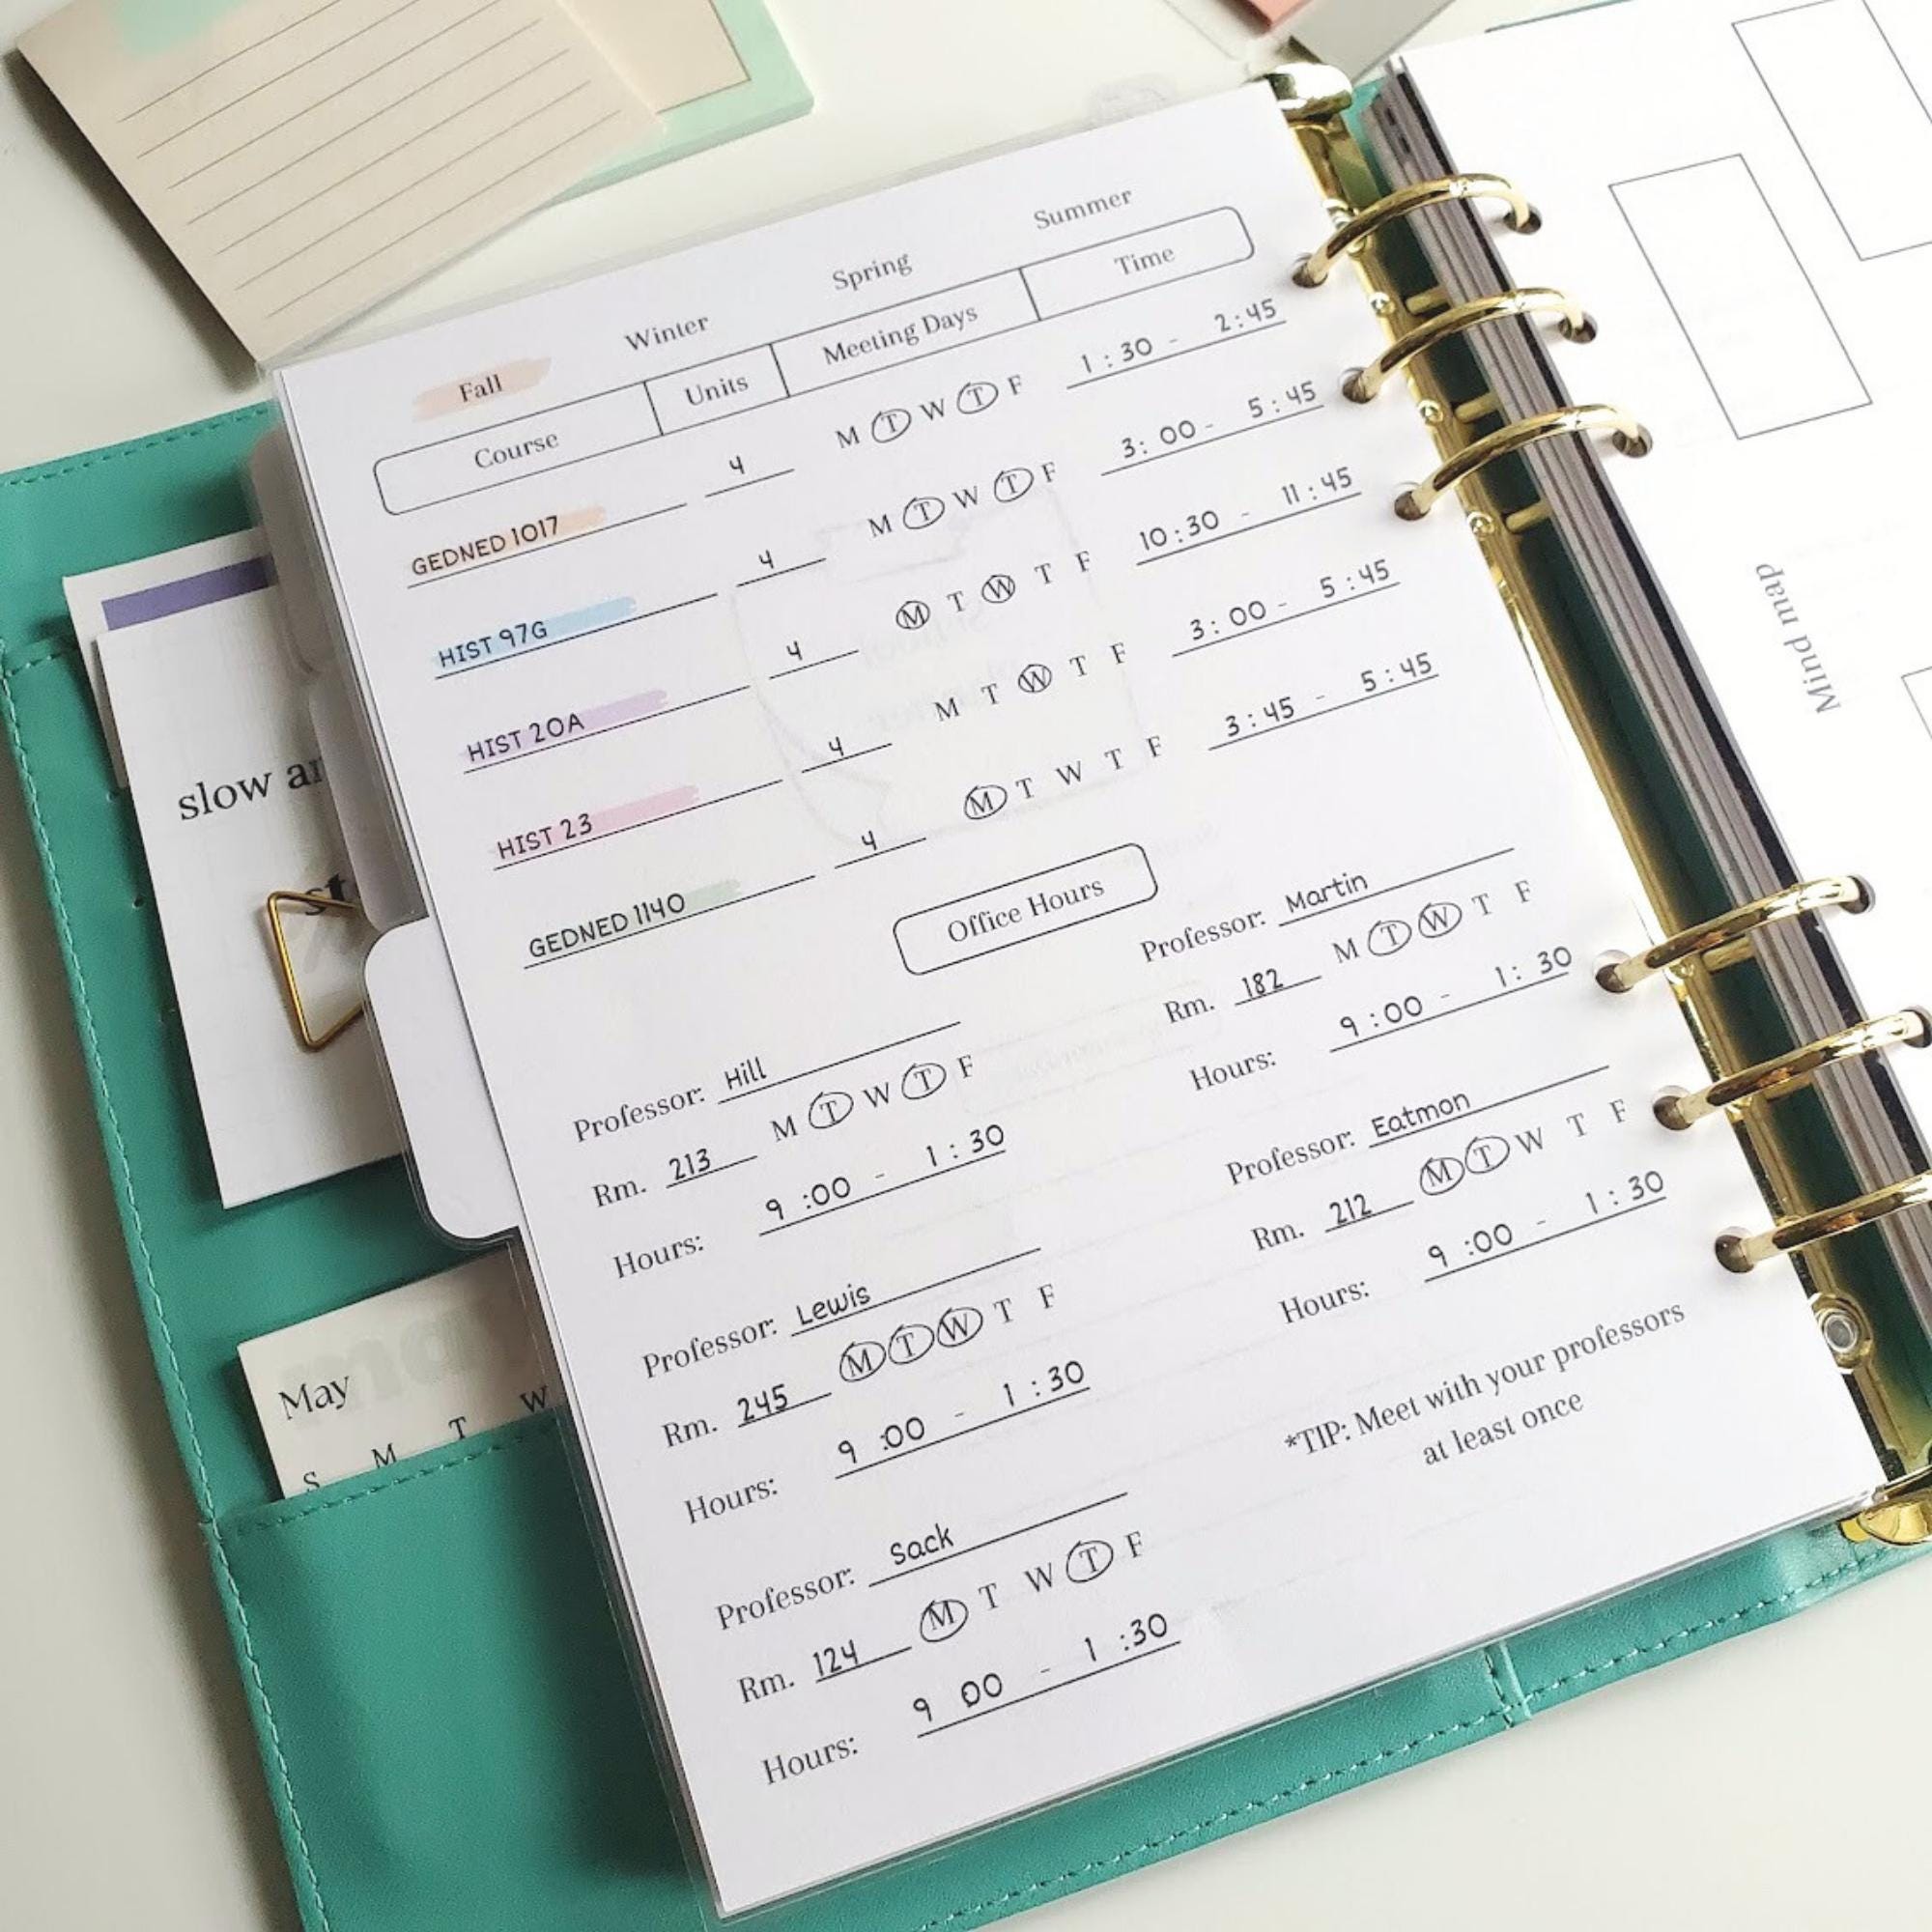 Fall Winter Spring Summer
Course Units Meeting Days Time
GEDNED 1017 4 M T W T F 1:30 - 2:45
HIST 97G 4 M T W T F 3:00 - 5:45
HIST 20A 4 M T W T F 10:30 - 11:45
HIST 23 4 M T W T F 3:00 - 5:45
GEDNED 1140 4 M T W T F 3:45 - 5:45
Office Hours
Professor: Hill
Rm. 213 M T W T F
Hours: 9:00 - 1:30
Professor: Lewis
Rm. 245 M T W T F
Hours: 9:00 - 1:30
Professor: Sack
Rm. 124 M T W T F
Hours: 9 00 - 1:30
Professor: Martin
Rm. 182 M T W T F
Hours: 9:00 - 1:30
Professor: Eatmon
Rm. 212 M T W T F
Hours: 9:00 - 1:30
*TIP: Meet with your professors
at least once
slow
May
S M T W
Mind map